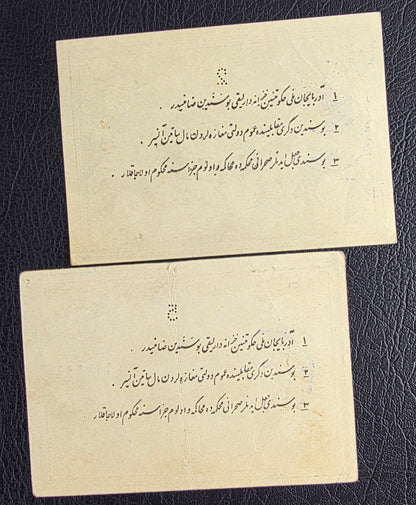 ۱ آذربایجان ملی حکومتنین خزانه داریقی بوسندین ضامنیدر .
۲ بوسندین دگری مقابلینده عموم دولتی مغازه لردن مال ساتین آلینیر .
۳ بوسندی جعل ایدنلر صحرائی محکمه ده محاکمه و اولوم جزاسنه محکوم اولاجاقلار .
۱ آذربایجان ملی حکومتنین خزانه داریقی بوسندین ضامنیدر .
۲ بوسندین دگری مقابلینده عموم دولتی مغازه لردن مال ساتین آلینیر .
۳ بوسندی جعل ایدنلر صحرائی محکمه ده محاکمه و اولوم جزاسنه محکوم اولاجاقلار